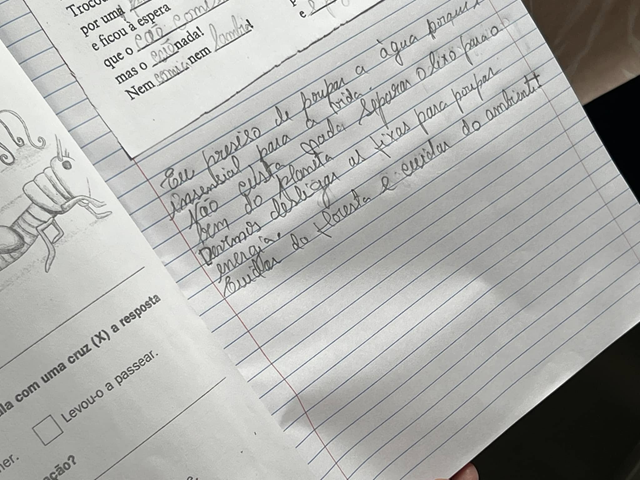 Troco
por uma
e ficou à espera
que o cão comi
mas o cão nada!
Nem comia, nem lambia!
P
e
Eu presiso de poupar a àgua porque é
insenbial para a vida.
Não custa nada separar o lixo para o
bem do planeta
Devimos desligar as fixas para poupar
energia.
Cuidar da floresta e cuidar do ambiente
ala com uma cruz (X) a resposta
Levou-o a passear.
her.
ação?